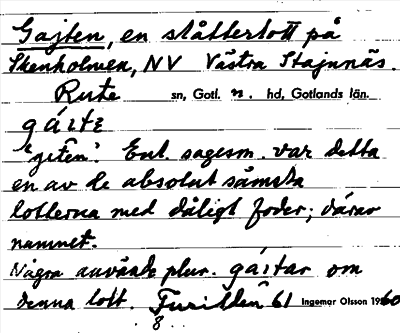 Gajten, en slåtterlott på
Skenholmen, NV Västra Stajnnäs.
Rute sn, Gotl. n. hd, Gotlands län.
gáitɛ
"geten". Enl. sagesm. var detta
en av de absolut sämsta
lotterna med dåligt foder; därav
namnet.
Några använde plur. gáitar om
denna lott. 61 Ingemar Olsson 1960
8